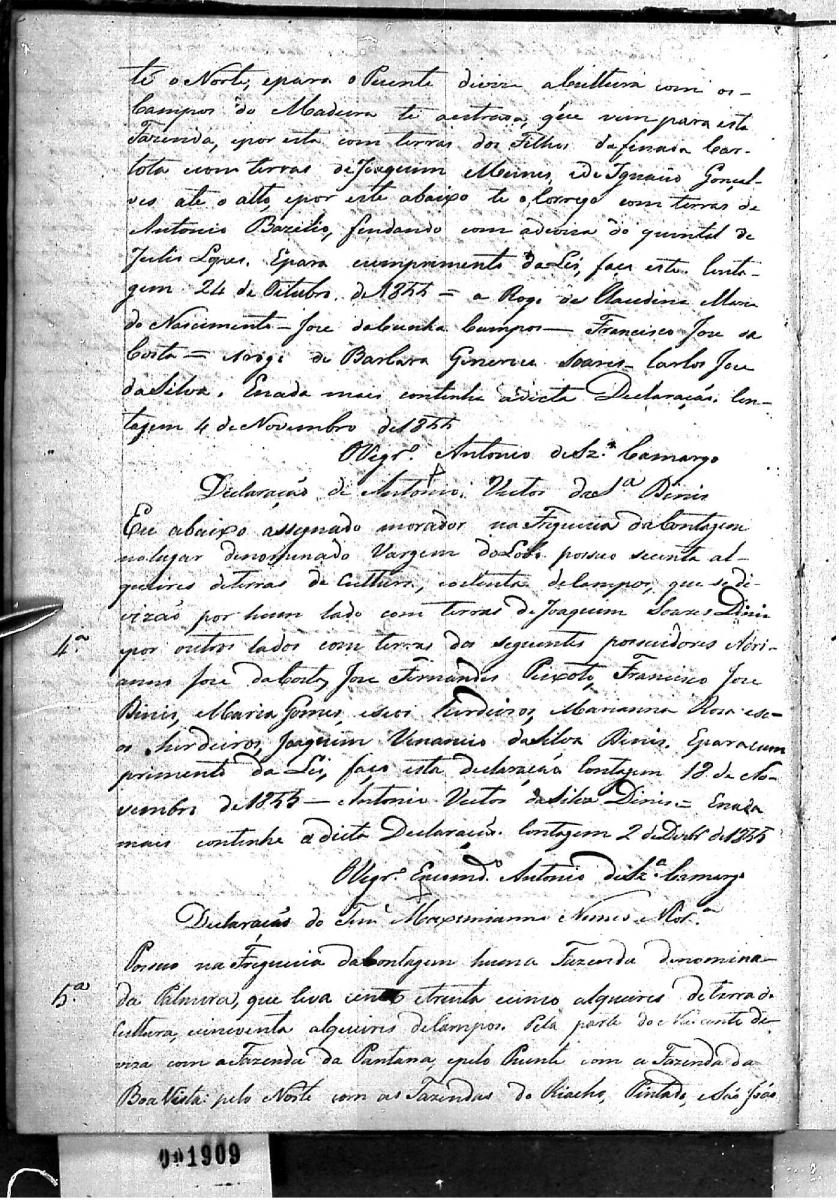 té o Norte, epara o Puente divize a Cultura com os
Campos do Madeira té aestrada, que vem para esta
Fazenda, epor esta com terras dos Filhos dafinada Car-
lota ecom terras de Joaquim Meires, ede Ignacio Gonçal-
ves até o alto, epor este abaixo té o Corrego com terras de
Antonio Bazilio, findando com adivisa do quintal de
Julio Lopes. Epara cumprimento da Lei, faço este. Conta-
gem 24 de Otubro de 1855 = a Rogo de Claudina Maria
do Nascimento - Jose daCunha Campos - Francisco Jose da
Costa = Arogo de Barbara Soares - Carlos Jose
daSilva. Enada mais continha adicta Declaração. Con-
tagem 4 de Novembro de 1855
OVigr.º Antonio deSz.ª Camargo
Declaração de Antonio Victor daS.ª Dinis
Eu abaixo assignado morador na Freguezia daContagem
nolugar denominado Vargem do Lobo possuo secenta al-
queires deterras de Cultura, eoitenta deCampos, que sedi-
vizão por hum lado com terras de Joaquim Soares Dinis
4.ª por outros lados com terras dos seguentes possuidores Adri-
anno Jose daCosta, Jose Fernandes Peixoto, Francisco Jose
Dinis, Maria Gomes, eseos Herdeiros, Marianna Rosa ese-
os herdeiros, Joaquim Venancio daSilva Dinis. Eparacum
primento da Lei, faço esta declaração Contagem 18 de No-
vembro de 1855 - Antonio Victor daSilva Dinis = Enada
mais continha adicta Declaração. Contagem 2 deDezbr.º de 1855
OVigr.º Encomd.º Antonio deSz.ª Camargo
Declaração do Ten.e Maximianno Nunes
Possuo na Freguezia daContagem huma Fazenda denomina-
5.ª da Palmira, que leva cento etrenta ecinco alqueires deterra de
Cultura, ecincoenta alqueires deCampos. Pela parte do Nascente di-
viza com aFazenda da Pantana, epelo Puente com a Fazenda da
Boa Vista: pelo Norte com as Fazendas do Riacho, Pintado, e São João
001909